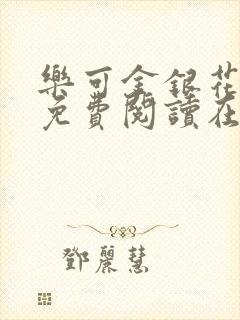 樂可金銀花
免費閱讀在
鄧麗慧